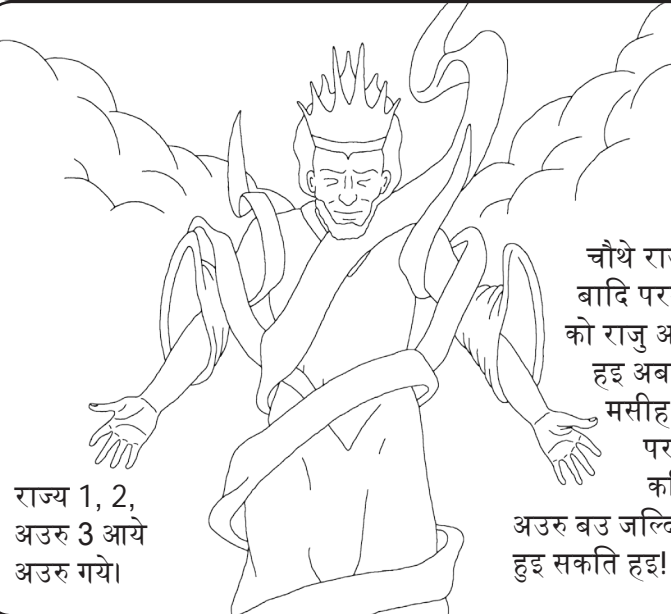 राज्य 1, 2,
अउरु 3 आये
अउरु गये।
चौथे
बादि
को राजु
हइ अब
मसीह
अउरु बउ
हुइ सकति हइ!